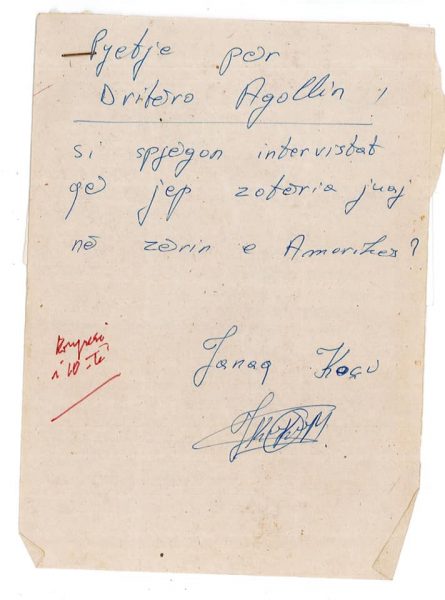 Pyetje për
Dritëro Agollin,
si spjegon intervistat
që jep zotëria juaj
në zërin e Amerikës?
Kongresi
i 10-të
Janaq Koçu